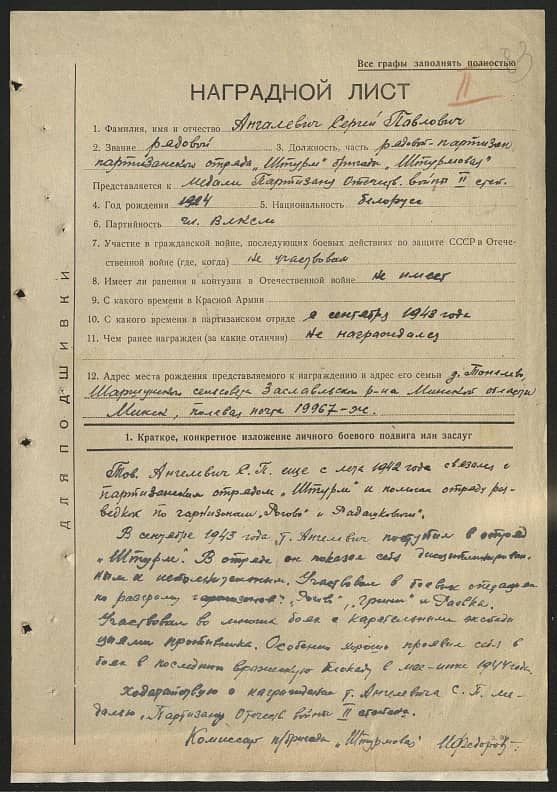 Все графы заполнять полностью
83
II
НАГРАДНОЙ ЛИСТ
1. Фамилия, имя и отчество Ангалевич Сергей Павлович
2. Звание рядовой 3. Должность, часть рядовой-партизан
партизанского отряда „Штурм" бригада „Штурмовая"
Представляется к медали Партизану Отечеств. войны II степ.
4. Год рождения 1924 5. Национальность белорус
6. Партийность чл. ВЛКСМ
7. Участие в гражданской войне, последующих боевых действиях по защите СССР в Отече-
ственной войне (где, когда) не участвовал
8. Имеет ли ранения и контузии в Отечественной войне не имеет
9. С какого времени в Красной Армии
10. С какого времени в партизанском отряде с сентября 1943 года
11. Чем ранее награжден (за какие отличия) не награждался
12. Адрес места рождения представляемого к награждению и адрес его семьи д.
сельсовета Заславльского р-на Минской области
Минск, полевая почта 19967-ж.
1. Краткое, конкретное изложение личного боевого подвига или заслуг
Тов. Ангелевич С. П. еще с 1942 года связался с
партизанским отрядом „Штурм" и помогал отряду раз-
ведкой по гарнизонам „Рогово" и „Радашковичи".
В сентябре 1943 года т. Ангелевич поступил в отряд
„Штурм". В отряде он показал себя дисциплинирован-
ным и исполнительным. Участвовал в боевых операциях
по разгрому гарнизонов: „Рогово", и Раевка.
Участвовал во многих боях с карательными экспеди-
циями противника. Особенно хорошо проявил себя в
боях в последнюю вражескую блокаду в мае-июне 1944 года.
Ходатайствую о награждении т. Ангелевича С. П. ме-
далью „Партизану Отечеств войны II степени.
Комиссар п/бригады „Штурмовая" И Федоров
ДЛЯ ПОДШИВКИ